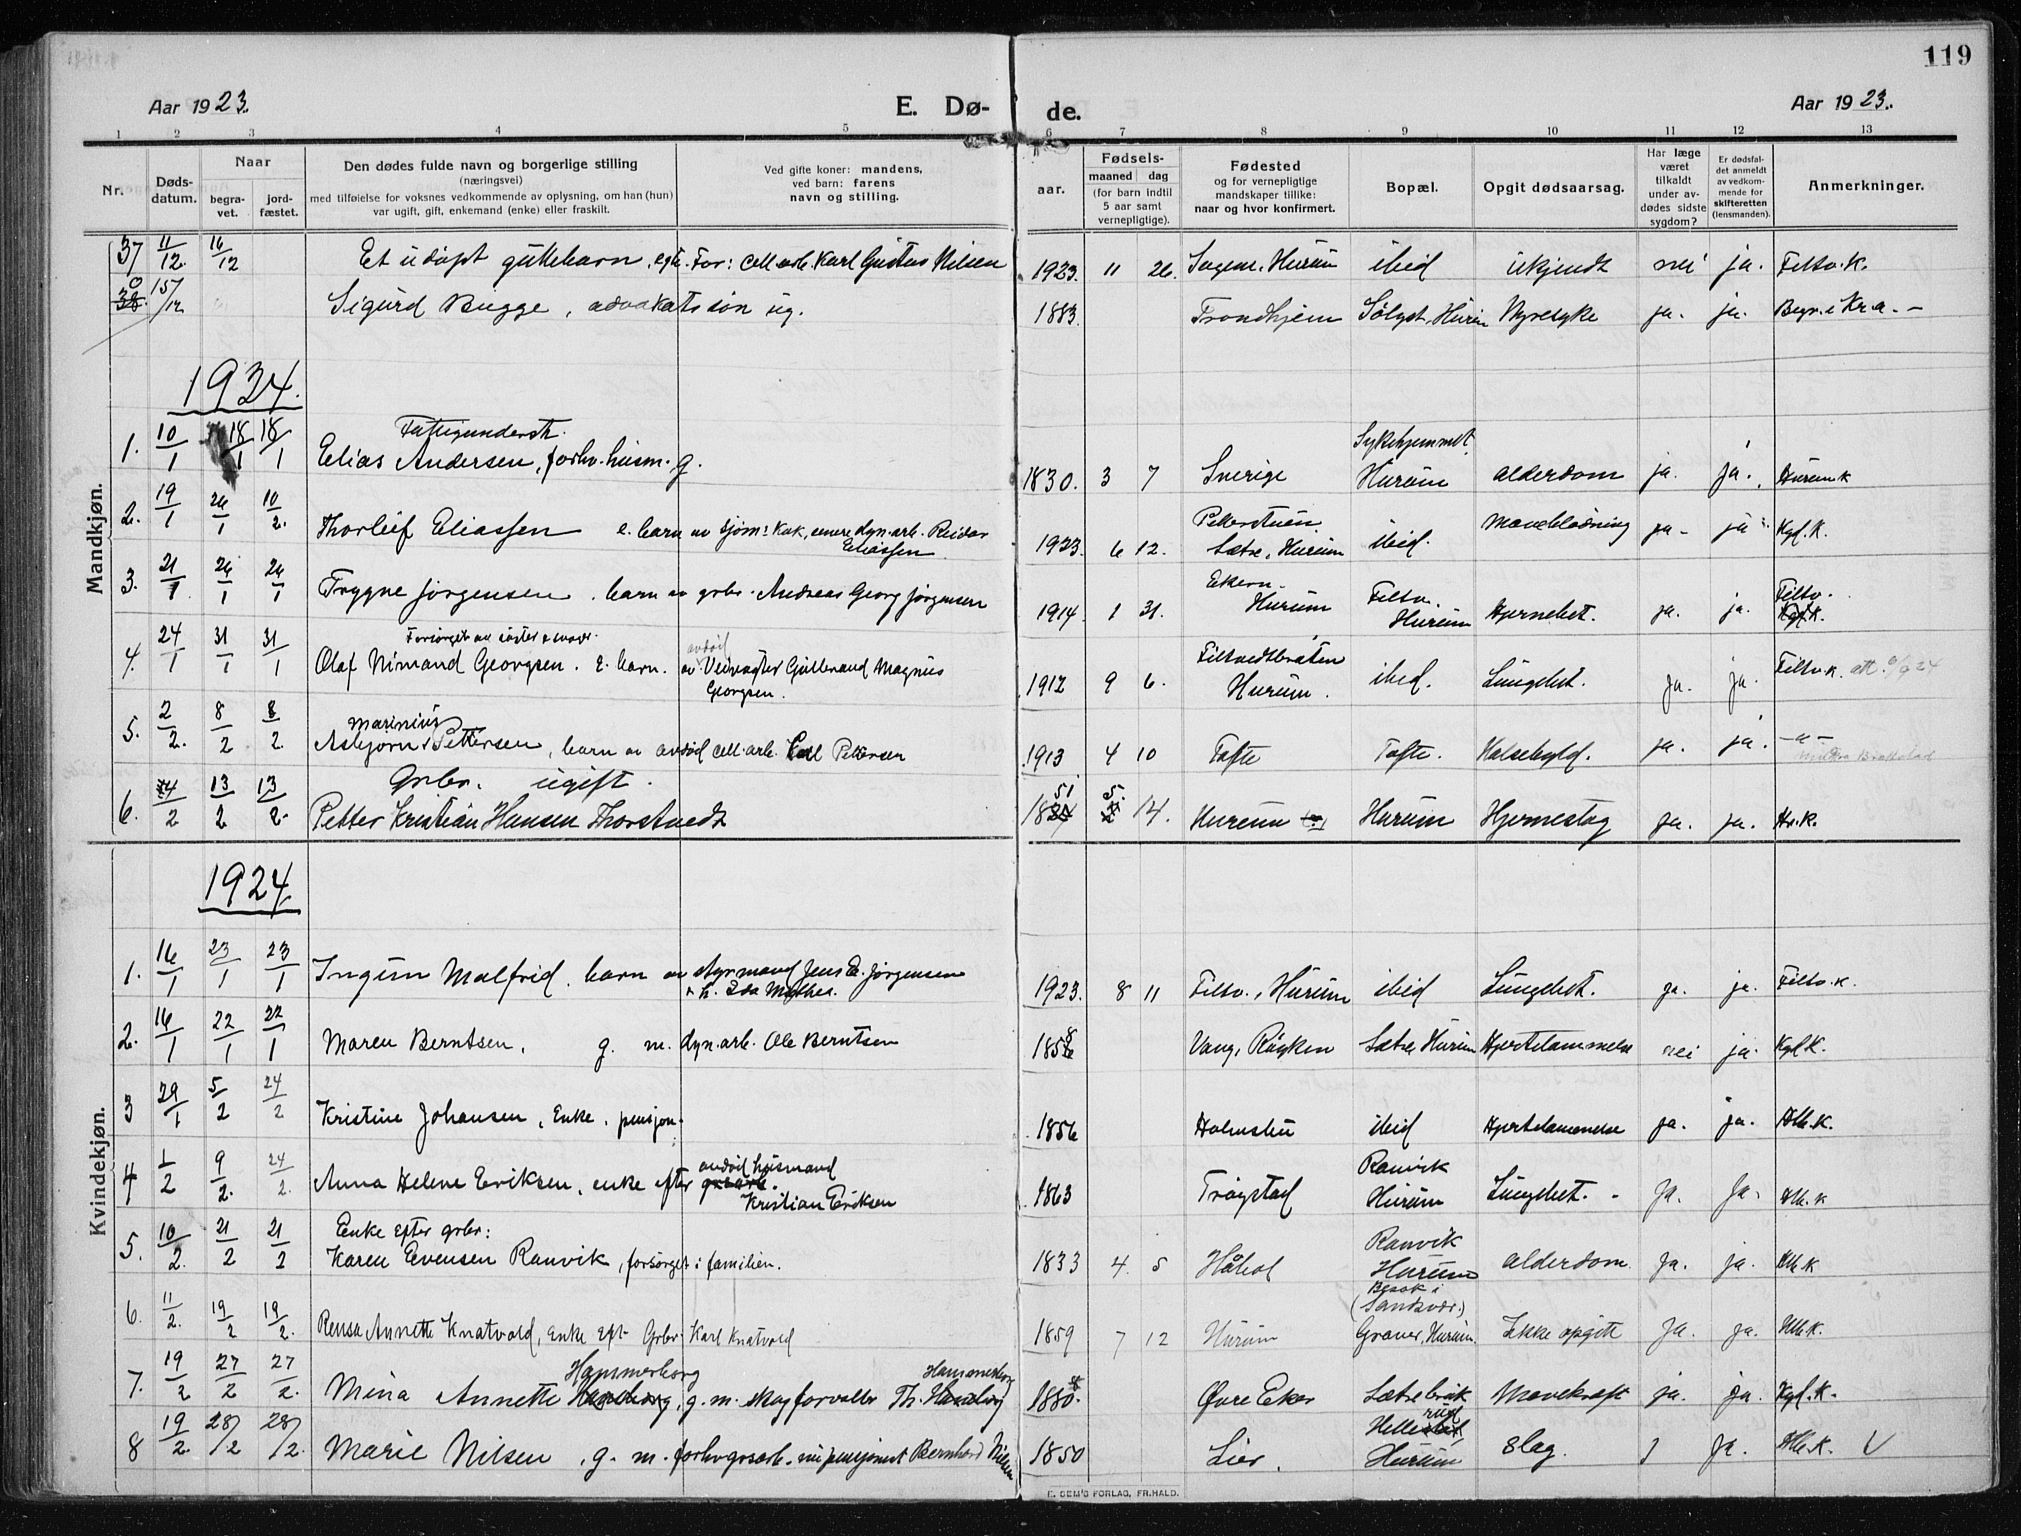 119
Aar 1923.
E. Dø-
de.
Aar 1923.
1 2 3 4 5 6 7 8 9 10 11 12 13
Nr.
Døds-
datum.
Naar
begra-
vet.
jord-
fæstet.
Den dødes fulde navn og borgerlige stilling
(næringsvei)
med tilføielse for voksnes vedkommende av oplysning, om han (hun)
var ugift, gift, enkemand (enke) eller fraskilt.
Ved gifte koner: mandens,
ved barn: farens
navn og stilling.
aar.
Fødsels-
maaned dag
(for barn indtil
5 aar samt
vernepligtige).
Fødested
og for vernepligtige
mandskaper tillike:
naar og hvor konfirmert.
Bopæl.
Opgit dødsaarsag.
Har læge
været
tilkaldt
under av-
dødes sidste
sygdom?
Er dødsfal-
det anmeldt
av vedkom-
mende for
skifteretten
(lensmanden).
Anmerkninger.
Mandkjøn.
37 11/12 16/12 Et udøpt guttebarn, egte. Far: cell.arb. Karl Gustav Nilsen 1923 11 26. Sagene, Hurum ibid ukjendt nei ja. Filtv.K.
38. 0 15/12 Sigurd Bugge, advokatssøn ug. 1883. Trondhjem Sølyst, Hurum Nyresyke ja. ja. Begr. i Kr.a. -
1934.
Fattigunderst.
1. 10/1 18/1 18/1 Elias Andersen, forhv. husm. g. 1830. 3 7 Sverige Sykehjemmet. Hurum alderdom ja. ja. Hurum k
2. 19/1 26/1 10/2. Thorleif Eliassen e. barn av sjøm: Kok, senere dyn.arb. Reidar
Eliassen 1923 6 12. Sætre, Hurum ibid. ja - ja Kgl.K.
3. 21/1 26/1 26/1 Trygve Jørgensen. barn av grbr. Andreas Georg Jørgensen 1914 1 31. Ekern. Hurum Filtv. Hurum Hjernebet. ja. ja. Filtv. K.
Forsørget av søster & svoger.
4. 24/1 31/1 31/1 Olaf Nimand Georgsen. E. barn. av avdød Veivogter Gulbrand Magnus
Georgsen. 1912 9 6. Filtvedtbråten Hurum. ibid. Lungebet. ja. ja. Filtv. K. att. 24
Marinius
5. 2/2. 8/2 8/2 Asbjørn Pettersen, barn av avdød cell.arb. Carl Pettersen 1913 4 10 Tofte Tofte. Halsebyld. ja. ja. - " -
Grbr. ugift.
6. 4/2 13/2 13/2 Petter Kristian Hansen Thorstvedt 1851 5. 14. Hurum Hurum Hjerneslag ja. ja. Hr.K.
Kvindekjøn.
1924.
1. 16/1 23/1 23/1 Ingun Malfrid. barn av styrmand Jens E. Jørgensen
1923. 8 11 Filtv., Hurum ibid Lungebet. ja. ja. Filtv.K.
2. 16/1 22/1 22/1 Maren Berntsen, g. m. dyn.arb. Ole Berntsen 1858 Vang, Røyken Sætre, Hurum Hjertelammelse nei ja. Kgl.K.
3 29/1 5/2 24/2 Kristine Johansen, Enke, pensjon. 1856 Holmsbu ibid Hjertelammelse ja. ja. Hlb.K.
4 1/2 9/2. 24/2. Anna Helene Eriksen, enke efter avdød husmand
Kristian Eriksen 1863 Trøgstad Ranvik Hurum Lungebet. ja. ja. Hlb.k
Enke efter grbr:
5. 10/2. 21/2 21/2 Karen Evensen Ranvik, forsørget i familien. 1833 4. 5 Håbol Ranvik Hurum alderdom. ja. ja. Hlb.k
6. 11/2. 19/2 19/2. Rensa Annette Knatvold, Enke eft. Grbr. Karl Knatvold 1859 7 12 Hurum (Besøk i Sandsvær.) Graner, Hurum. Ikke opgitt ja. ja. Hlb.K.
Hammerborg Hammerborg
7. 19/2 27/2 27/2. Mina Annette, g. m. skogforvalter Th. 1880. Øvre Eker Sætrebruk Mavekræft ja. ja. Kgl.K.
8 19/2. 28/2 28/2. Marie Nilsen, g. m. forhv. grarb. nu pensjonist Bernhard Nilsen 1850 Lier. Hellerud, Hurum slag. ja. Hlb.K. V
E. SEM'S FORLAG, FR.HALD.